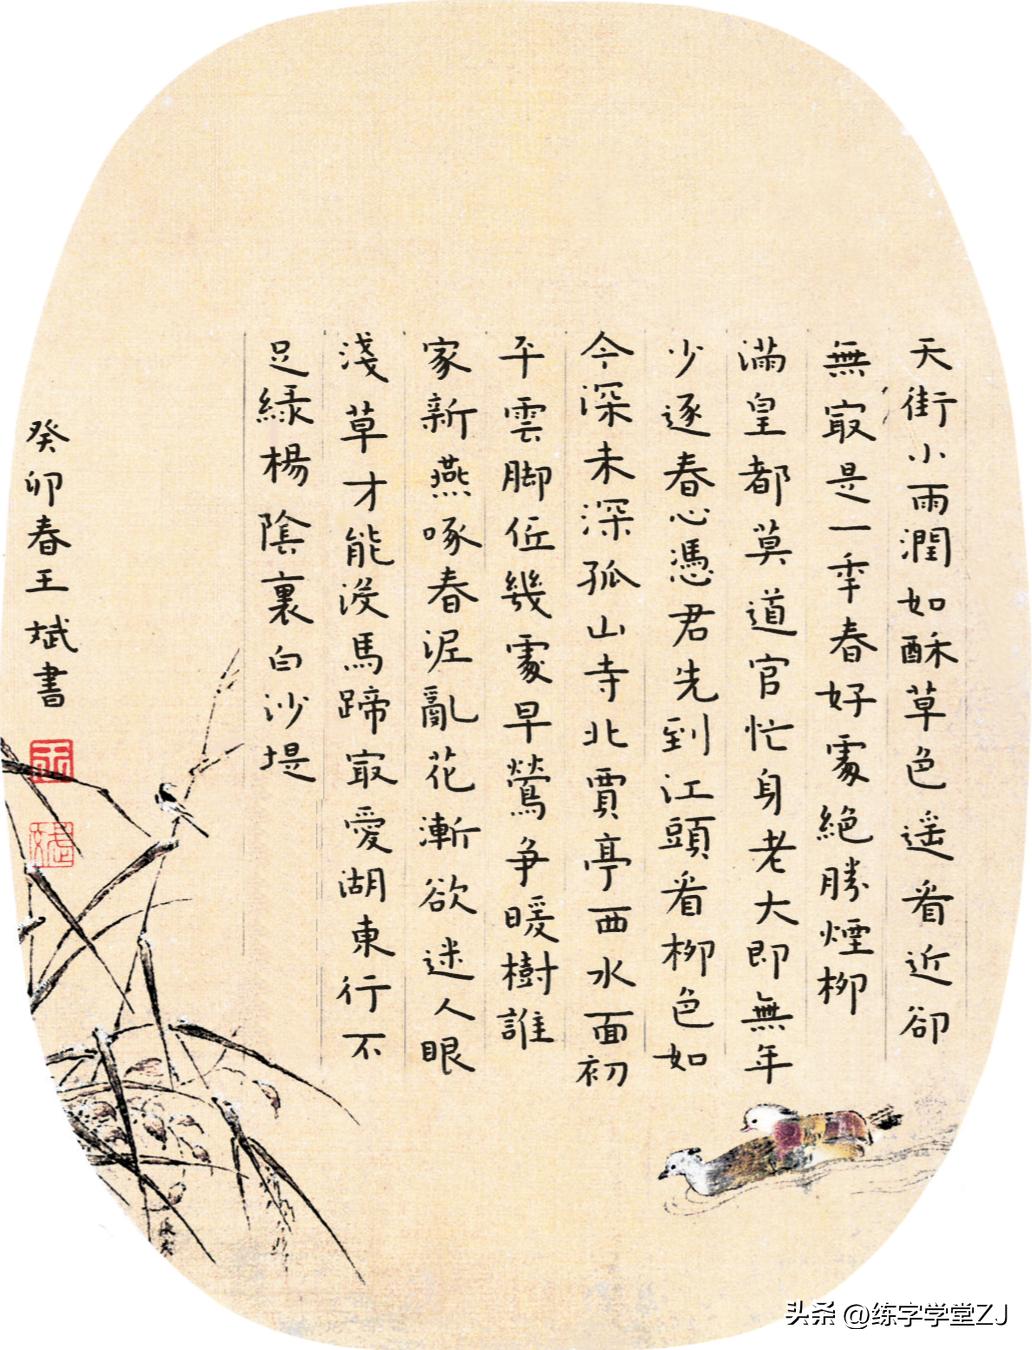 天街小雨潤如酥草色遥看近卻
無㝡是一秊春好處絕勝煙柳
滿皇都莫道官忙身老大即無年
少逐春心憑君先到江頭看柳色如
今深未深孤山寺北賈亭西水面初
平雲脚低幾處早鶯争暖樹誰
家新燕啄春泥亂花漸欲迷人眼
淺草才能没馬蹄㝡愛湖東行不
足緑楊陰裏白沙堤
癸卯春王斌書
头条 @练字学堂ZJ